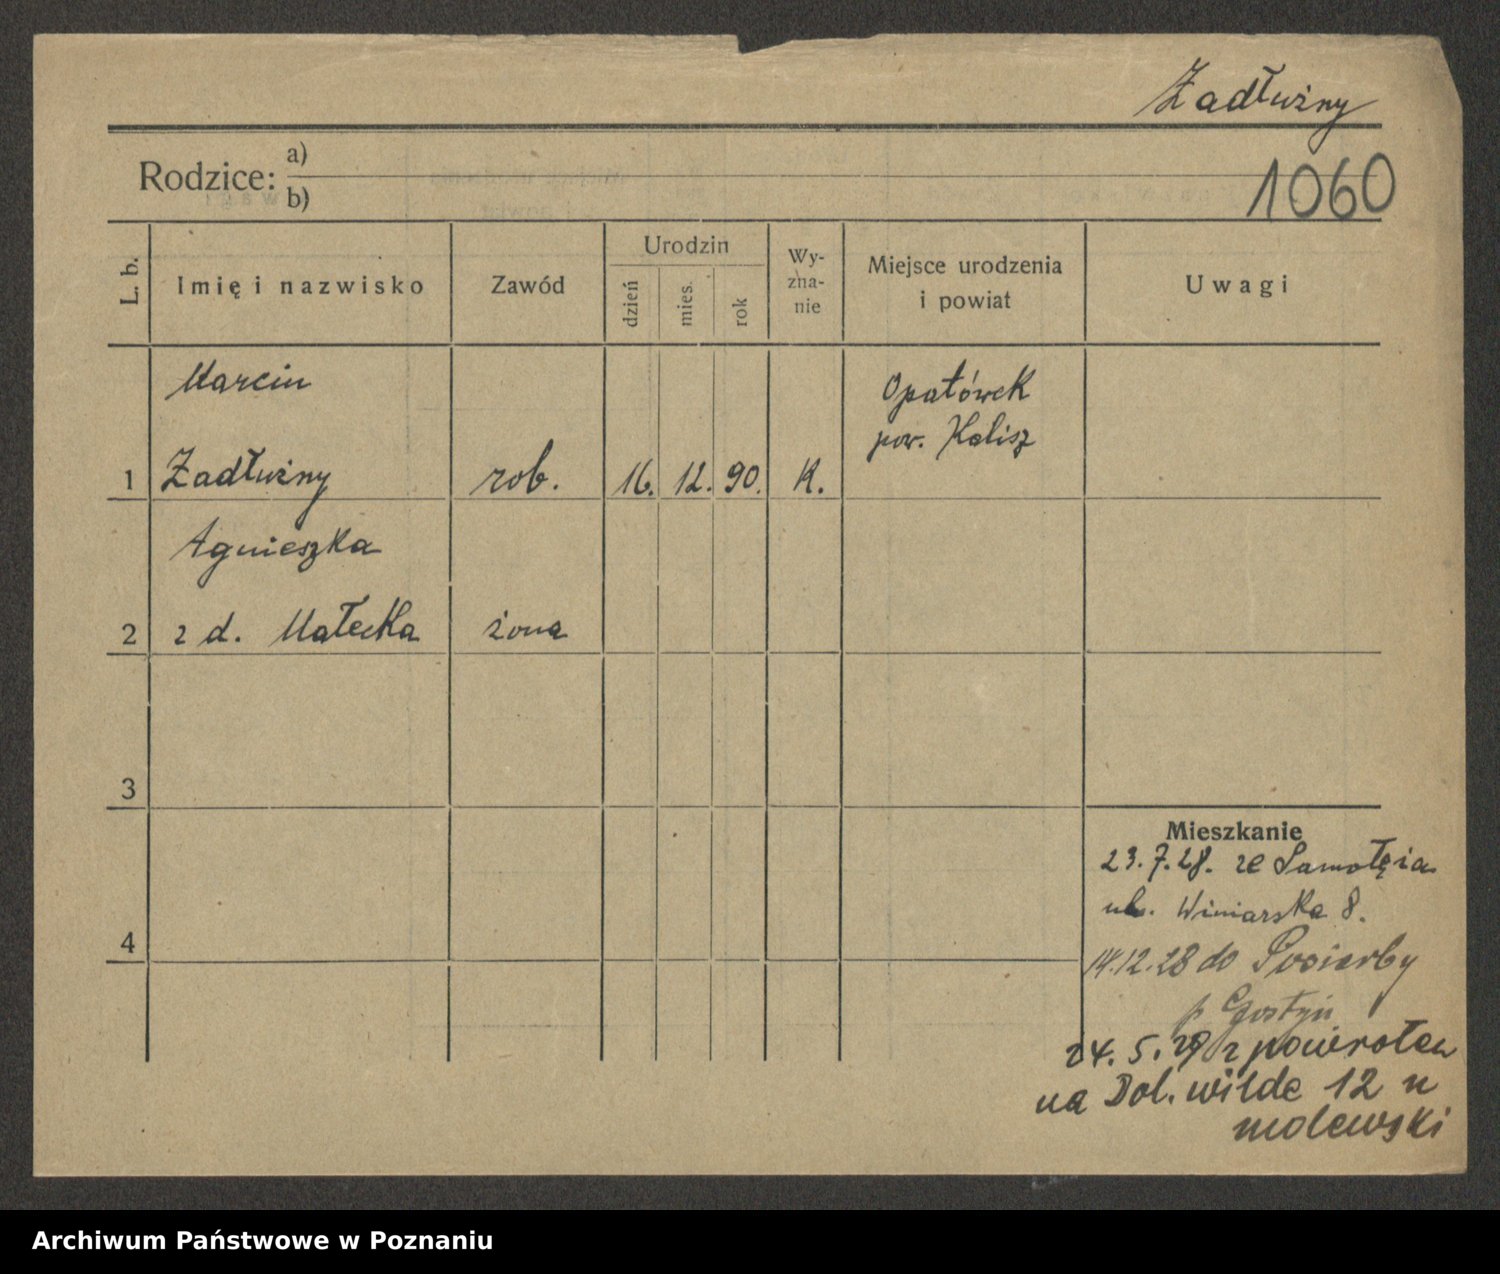 Zadłużny
Rodzice: a)
b)
1060
L. b.
Imię i nazwisko
Zawód
Urodzin
dzień
mies.
rok
Wy-
zna-
nie
Miejsce urodzenia
i powiat
Uwagi
Marcin
Opatówek
pow. Kalisz
1 Zadłużny rob. 16. 12. 90. K.
Agnieszka
2 z d. Małecka żona
3
Mieszkanie
23.7.28. ze
ul. Winiarska 8.
4
14.12.28 do
p Gostyń
24. 5. 29 z powrotem
na Dol. wilde 12 u
molewski
Archiwum Państwowe w Poznaniu